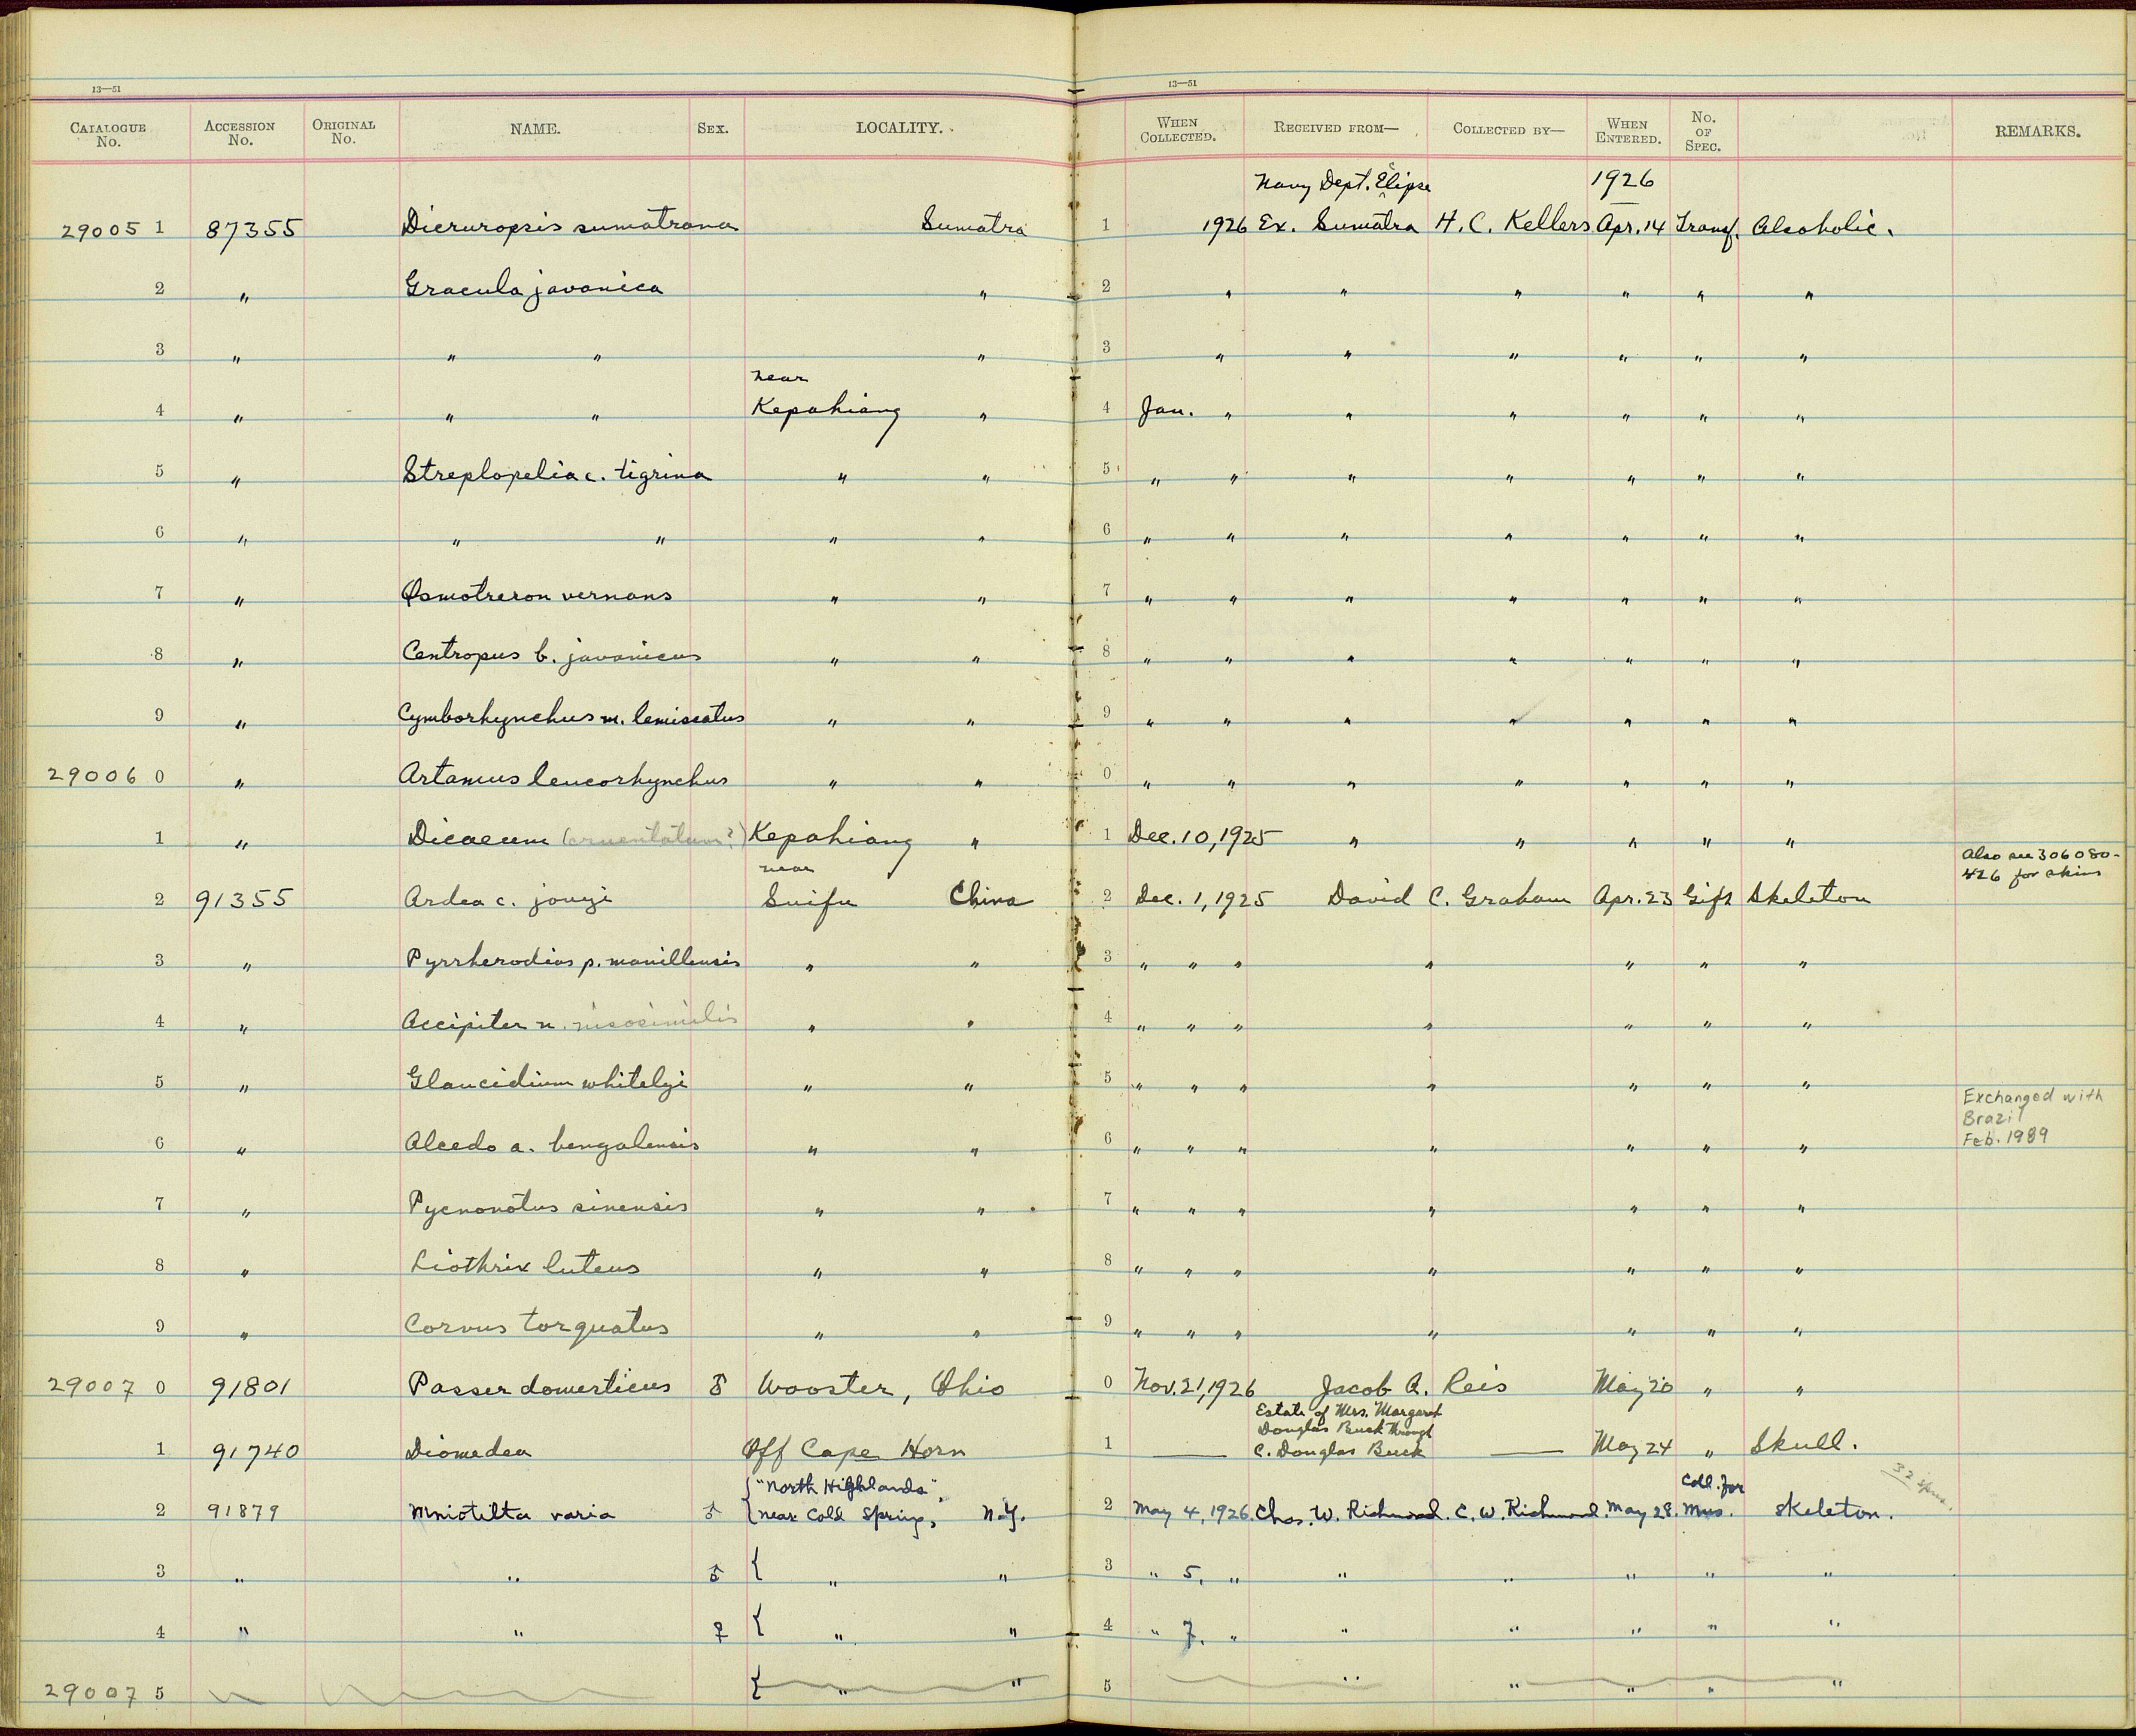 13—51
13—51
CATALOGUE No. ACCESSION No. ORIGINAL No. NAME. SEX. LOCALITY. WHEN COLLECTED. RECEIVED FROM— COLLECTED BY— WHEN ENTERED. No. OF SPEC. REMARKS.
Navy Dept. Eclipse 1926
29005 1 87355 Dicruropsis sumatrana Sumatra 1 1926 Ex. Sumatra H. C. Kellers Apr. 14 Transf. Alcoholic.
2 " Gracula javanica " 2 " " " " " "
3 " " " " 3 " " " " " "
near
4 " " " Kepahiang " 4 Jan. " " " " " "
5 " Streptopelia c. tigrina " " 5 " " " " " " "
6 " " " " " 6 " " " " " " "
7 " Osmotreron vernans " " 7 " " " " " " "
8 " Centropus b. javanicus " " 8 " " " " " " "
9 " Cymborhynchus m. lemiscatus " " 9 " " " " " " "
29006 0 " Artamus leucorhynchus " " 0 " " " " " " "
1 " Dicaeum (cruentatum?) Kepahiang " 1 Dec. 10, 1925 " " " " "
Also see 306080-
426 for skins
near
2 91355 Ardea c. jouyi Suifu China 2 Dec. 1, 1925 David C. Graham Apr. 23 Gift Skeleton
3 " Pyrrherodias p. manillensis " " 3 " " " " " " "
4 " Accipiter n. nisosimilis " " 4 " " " " " " "
5 " Glaucidium whitelyi " " 5 " " " " " " "
Exchanged with
Brazil
Feb. 1989
6 " Alcedo a. bengalensis " " 6 " " " " " " "
7 " Pycnonotus sinensis " " 7 " " " " " " "
8 " Liothrix luteus " " 8 " " " " " " "
9 " Corvus torquatus " " 9 " " " " " " "
29007 0 91801 Passer domesticus ♂ Wooster, Ohio 0 Nov. 21, 1926 Jacob A. Reis May 20 " "
Estate of Mrs. Margaret
Douglas Buck through
1 91740 Diomedea Off Cape Horn 1 — C. Douglas Buck — May 24 " Skull.
32 spms.
{ "North Highlands", Coll. for
2 91879 Mniotilta varia ♂ { near Cold Spring, N.Y. 2 May 4, 1926. Chas. W. Richmond. C. W. Richmond. May 28. Mus. Skeleton.
3 " " ♂ { " " 3 " 5, " " " " " "
4 " " ♀ { " " 4 " 7. " " " " " "
29007 5 { " " 5 " " " " "